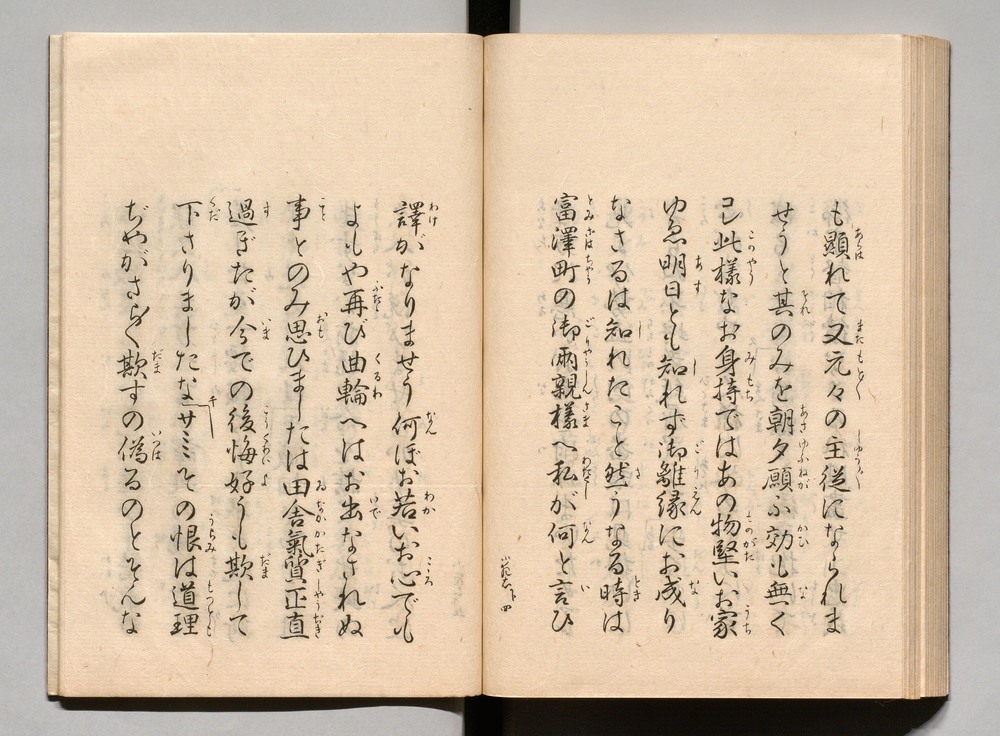 も顯れて又元々の主從になられま
せうと其のみを朝夕願ふ効も無く
コレ此樣なお身持ではあの物堅いお家
ゆゑ明日とも知れず御離縁にお成り
なさるは知れたこと然うなる時は
富澤町の御両親樣へ私が何と言ひ
譯がなりませう何ぼお若いお心でも
よもや再び曲輪へはお出なされぬ
事とのみ思ひましたは田舎氣質正直
過ぎたが今での後悔好うも欺して
下さりましたなサミその恨は道理
ぢやがさらさら欺すの偽るのとそんな